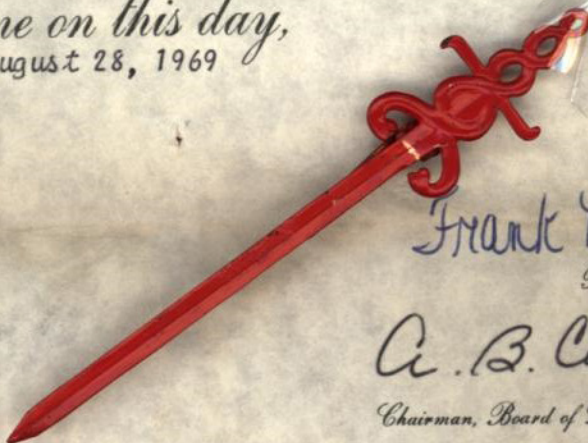 on this day,
ugust 28, 1969
Frank
A. B.
Chairman, Board of